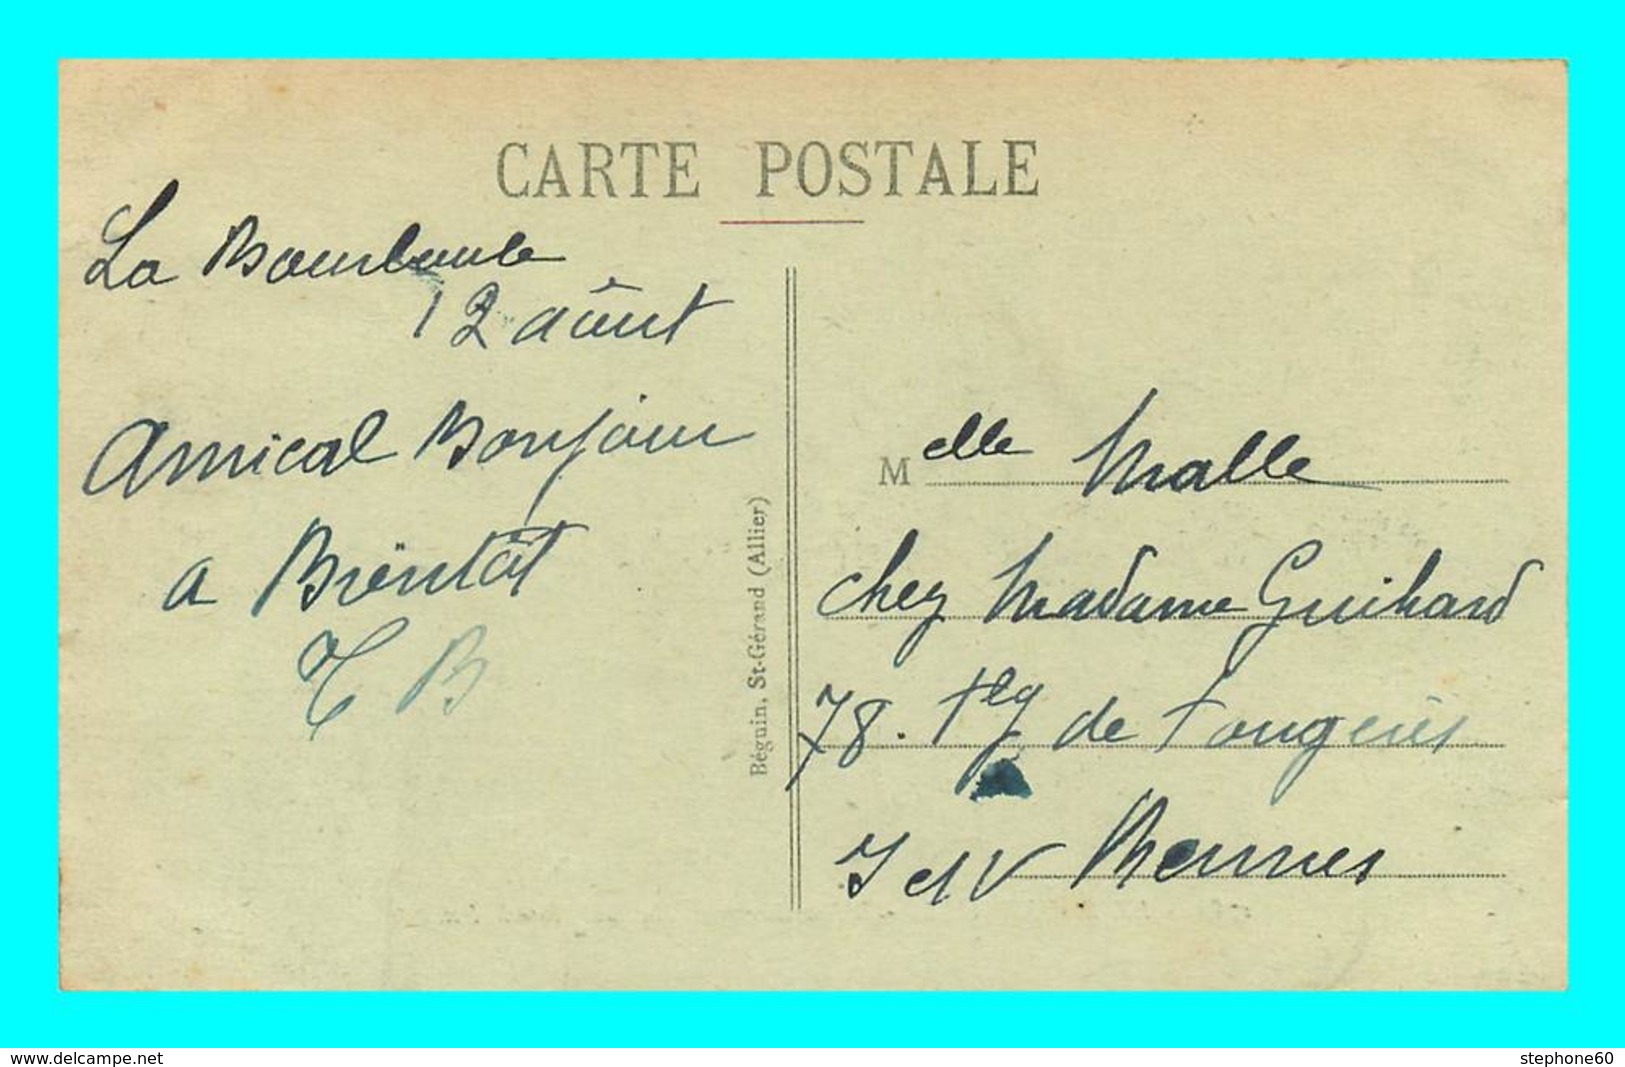 CARTE POSTALE
La Bourboule
12 août
Amical Bonjour
a Bientôt
T B
Béguin, St-Gérand (Allier)
Melle Malle
chez Madame Guihard
78. Fbg de Fougères
I et V Rennes
www.delcampe.net
stephone60